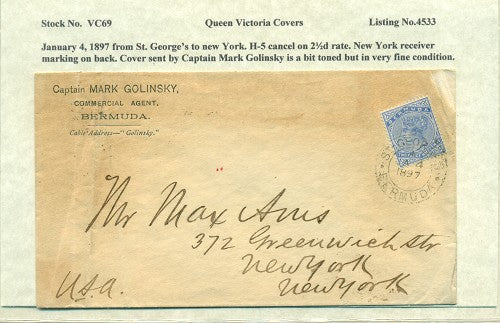 Stock No. VC69 Queen Victoria Covers Listing No.4533
January 4, 1897 from St. George's to new York. H-5 cancel on 2½d rate. New York receiver
marking on back. Cover sent by Captain Mark Golinsky is a bit toned but in very fine condition.
Captain MARK GOLINSKY,
COMMERCIAL AGENT,
BERMUDA.
Cable Address—"Golinsky."
BERMUDA
GEOR
4
1897
BERMUDA
Mr Max Ams
372 Greenwich str
New York
New York
U.S.A.